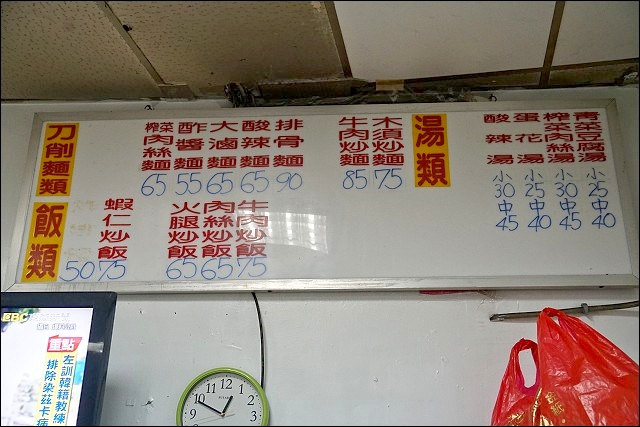 刀削麵類
榨菜肉絲麵 65
酢醬麵 55
大滷麵 65
酸辣麵 65
排骨麵 90
牛肉炒麵 85
木須炒麵 75
湯類
酸辣湯 小30 中45
蛋花湯 小25 中40
榨菜肉絲湯 小30 中45
青菜豆腐湯 小25 中40
飯類
50
蝦仁炒飯 75
火腿炒飯 65
肉絲炒飯 65
牛肉炒飯 75
EBC
重點
左訓韓籍教練
排除染茲卡病
10 11 12 1 2 3 9